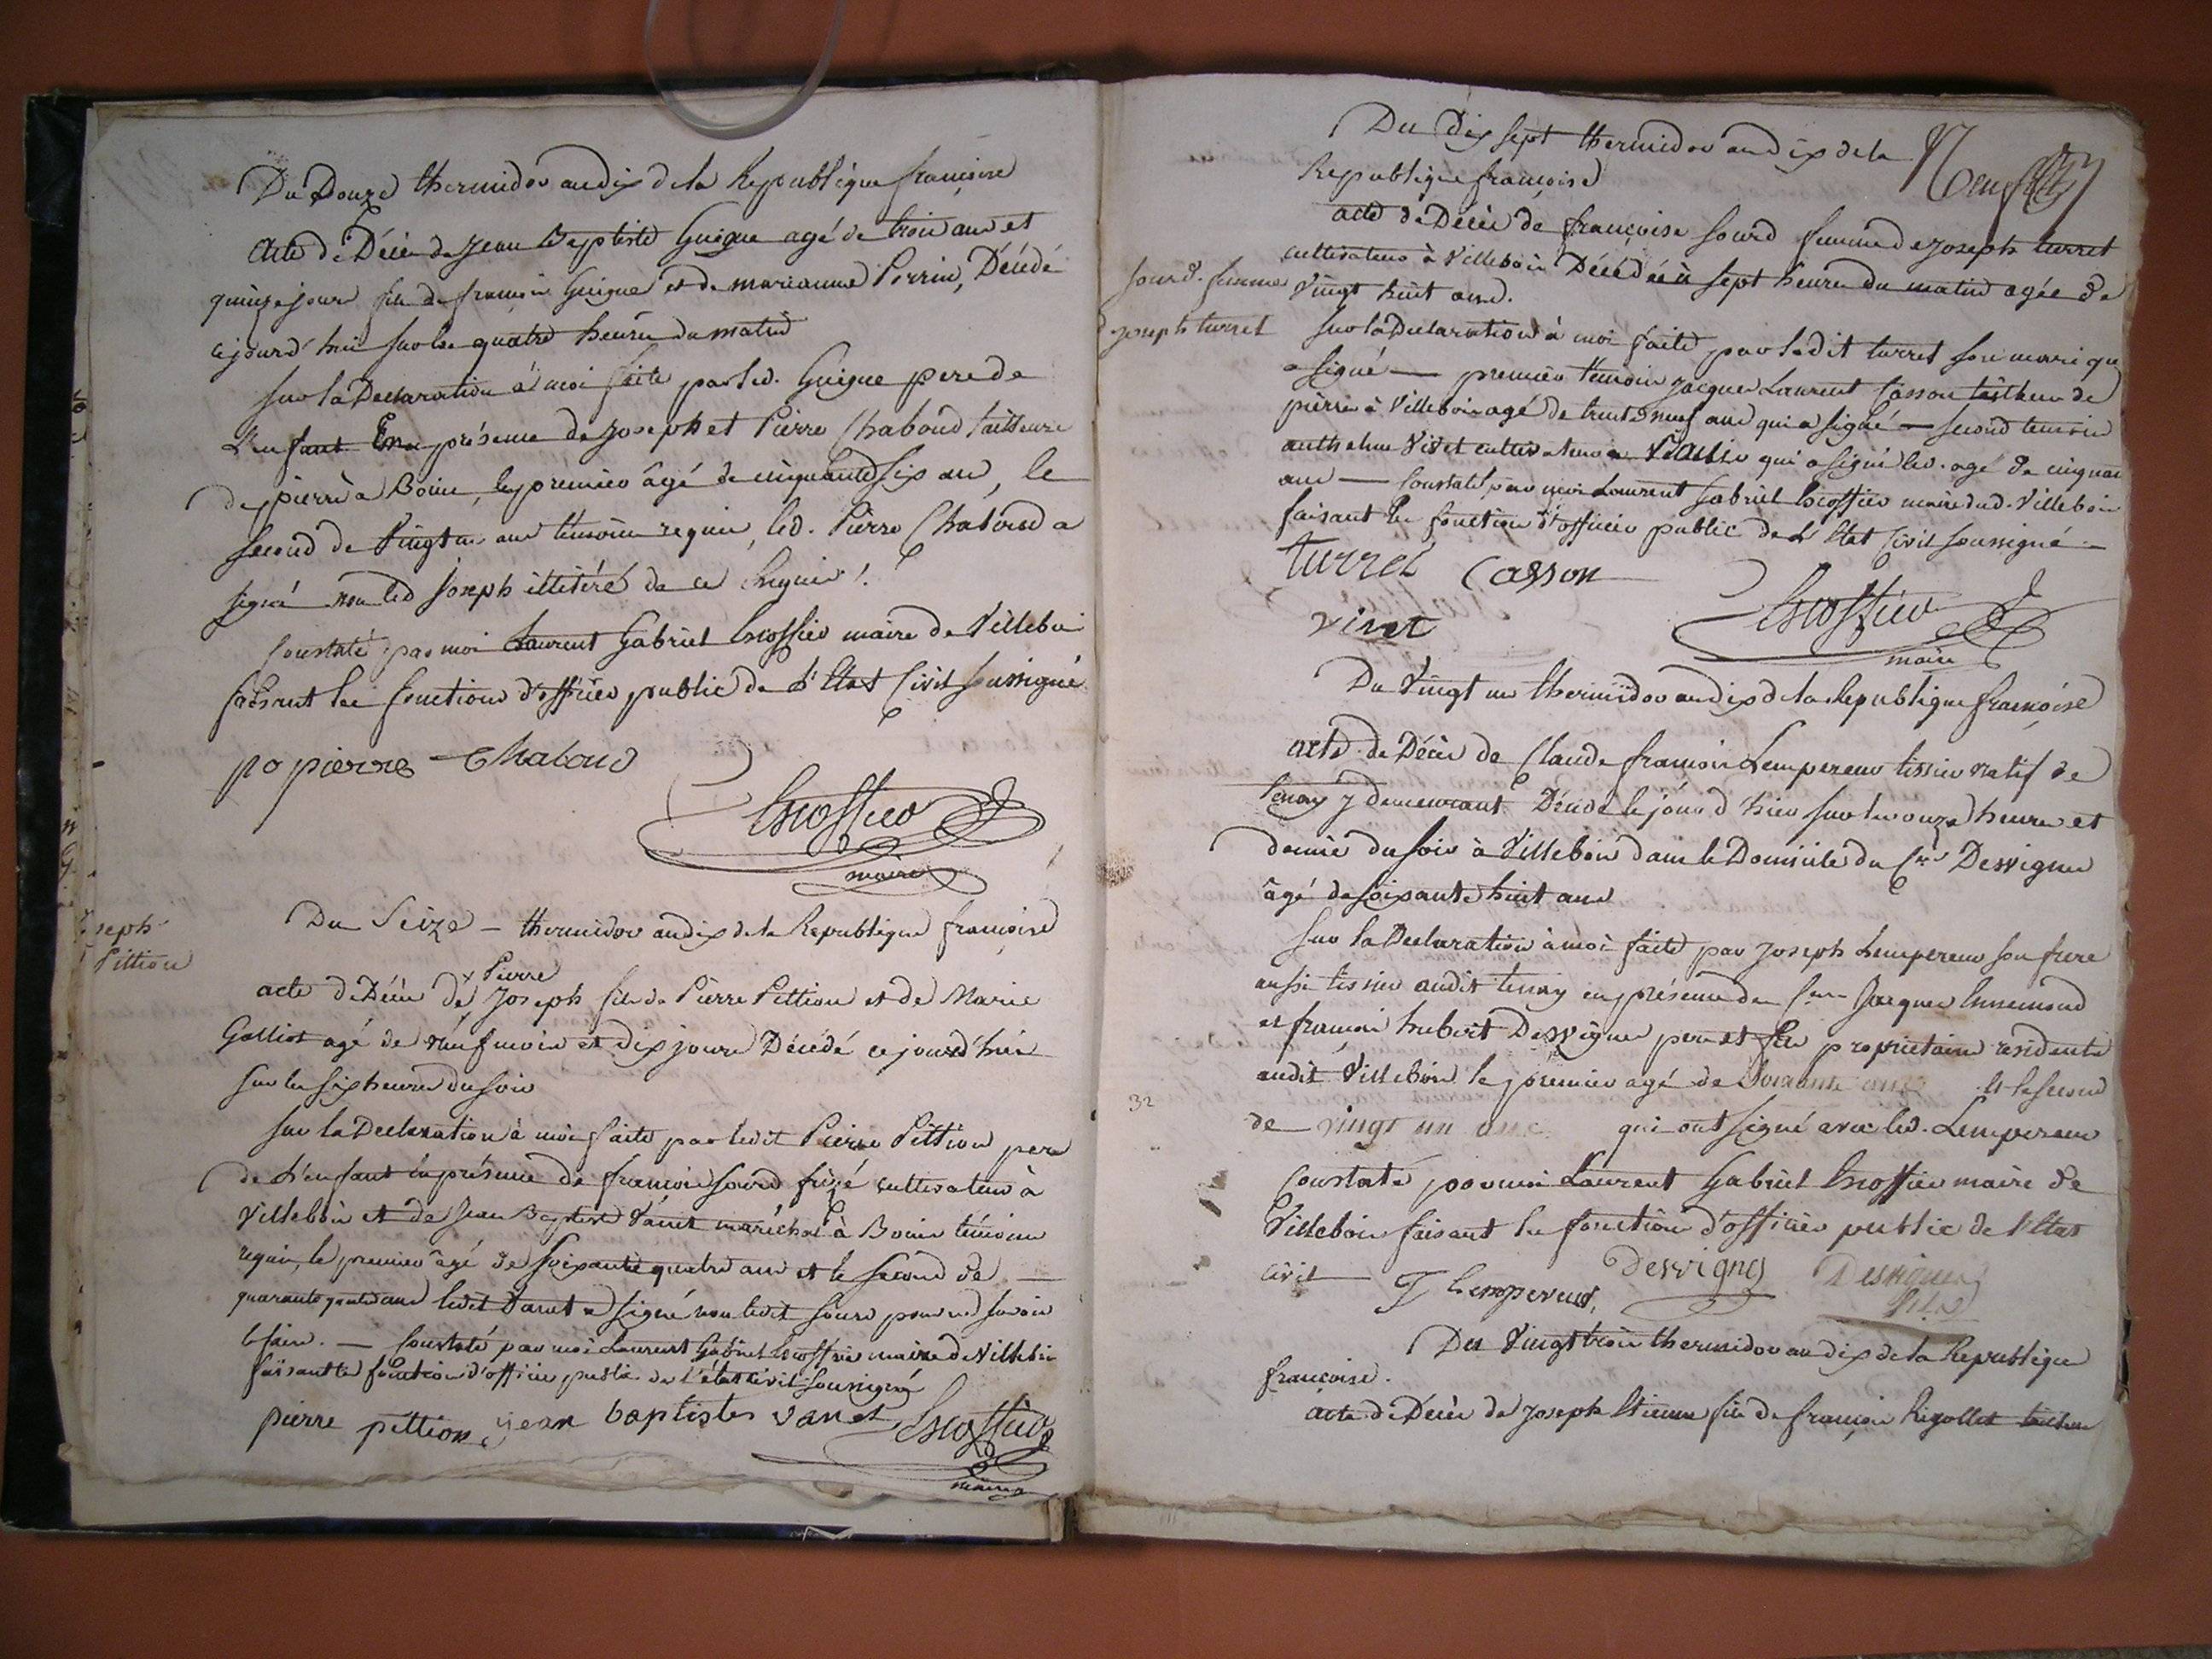 Du Douze thermidor an dix de la Republique françoise
Acte de Décès de Jean Baptiste Guigue agé de trois ans et
quinze jours fils de françois Guigue et de marianne Perrin, Décédé
cejourd'hui sur les quatre heures du matin
sur la Declaration à moi faite par led. Guigue pere de
L'enfant En présence de Joseph et Pierre Chaboud tailleurs
de pierre a Bouis, le premier âgé de cinquante six ans, le
second de Vingt un ans temoins requis, led. Pierre Chaboud a
signé non led joseph illitéré de ce Enquis.
Constaté par moi Laurent Gabriel Escoffier maire de Villebois
faisant les fonctions d'officier public de L'Etat Civil soussigné
po pierre Chaboud
Escoffier
maire
Du Seize - thermidor an dix de la Republique françoise
seph
Pittion
Pierre
acte de Décès de Joseph fils de Pierre Pittion et de Marie
Galliot agé de neuf mois et dix jours Décédé ce jourd'hui
sur les six heures du soir
sur la Declaration à moi faite par ledit Pierre Pittion pere
de L'enfant en présence de françois Sourd frizé cultivateur à
Villebois et de Jean Baptiste Vanet maréchal à Bouis témoins
requis, le premier âgé de soixante quatre ans et le second de —
quarante quatre ans ledit Vanet a signé non ledit Sourd pour ne savoir
le faire. — Constaté par moi Laurent Gabriel Escoffier maire de Villebois
faisant les fonctions d'officier public de l'état civil soussigné
pierre pittion jean baptiste vanet Escoffier
maire
Du Dix sept thermidor an dix de la
Neuf
Republique françoise
acte de Décès de françoise Sourd femme de Joseph turret
cultivateur à Villebois Décédée à sept heures du matin agée de
Sourd. femme
Vingt huit ans.
d joseph turret
sur la Declaration à moi faite par ledit turret son mari qui
a signé — premier temoin Jacques Laurent Casson tailleur de
pierre à Villebois agé de trente neuf ans qui a signé — second temoin
anthelme Vivet cultivateur a qui a signé led. agé de cinquante
ans — Constaté par moi Laurent Gabriel Escoffier maire dud. Villebois
faisant les fonctions d'officier public de L'Etat Civil soussigné —
turret Casson
vivet
Escoffier
maire
Du Vingt un thermidor an dix de la Republique françoise
acte de Décès de Claude françois Lempereur tissier natif de
Tenay y demeurant Décédé le jour d'hier sur les onze heures et
demie du soir à Villebois dans le Domicile du Cen Desvignes
âgé de soixante huit ans
sur la Declaration à moi faite par Joseph Lempereur son frere
aussi tissier audit tenay en présence des Cens Jacques Ennemond
et françois hubert Desvignes pere et fils propriétaires residents
audit Villebois le premier agé de soixante ans et le second
32
de vingt un ans qui ont signé avec led. Lempereur
Constaté par moi Laurent Gabriel Escoffier maire de
Villebois faisant les fonctions d'officier public de l'Etat
civil — J Lempereur, Desvignes Desvignes
fils
Du Vingt trois thermidor an dix de la Republique
françoise.
acte de Décès de Joseph Etienne fils de françois Rigollet tailleur